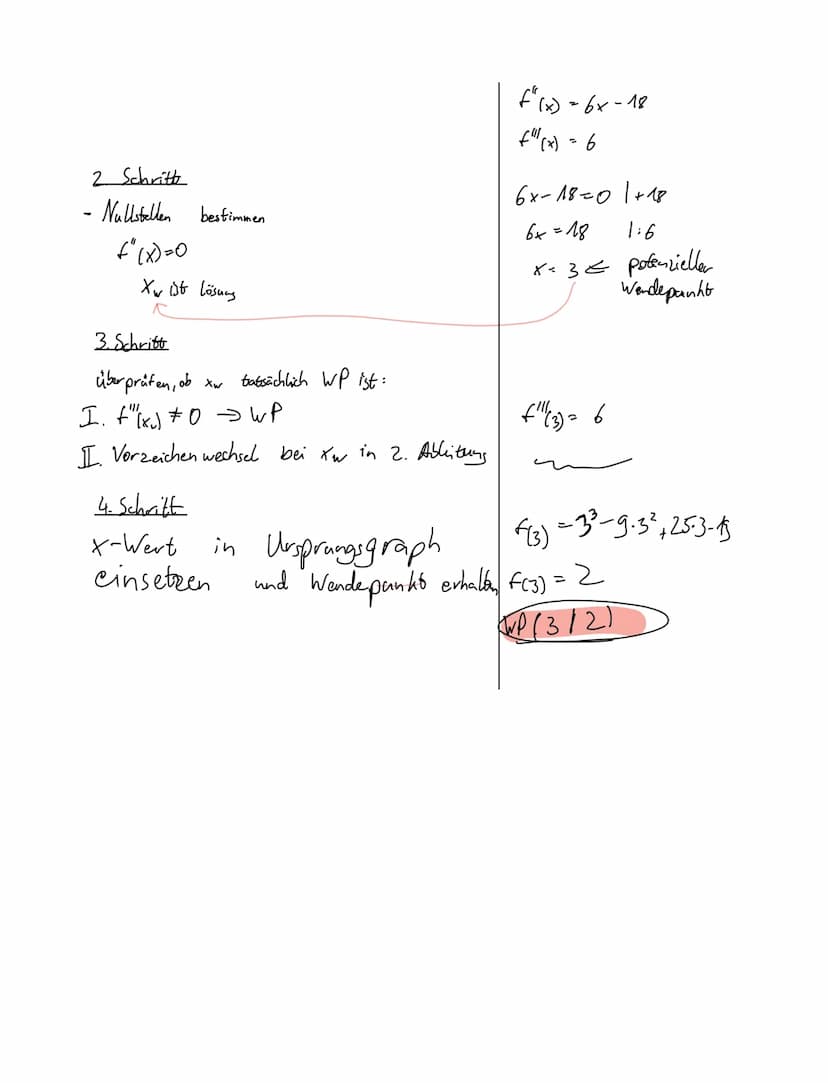 f''(x) = 6x - 18
f'''(x) = 6
2 Schritt
- Nullstellen bestimmen
f''(x)=0
xw ist Lösung
6x - 18 = 0 | + 18
6x = 18 | : 6
x = 3 ⇐ potenzieller
Wendepunkt
3. Schritt
überprüfen, ob xw tatsächlich WP ist:
I. f'''(xw) ≠ 0 → WP
II. Vorzeichenwechsel bei xw in 2. Ableitung
f'''(3) = 6
4. Schritt
x-Wert in Ursprungsgraph
einsetzen und Wendepunkt erhalten
f(3) = 3³ - 9·3² + 25·3 -
f(3) = 2
WP ( 3 / 2 )